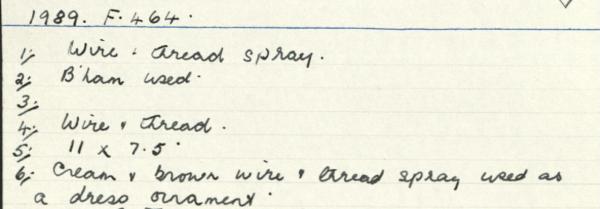 1989. F. 464.
1; Wire & thread spray.
2; B'ham used.
3;
4; Wire & thread.
5; 11 x 7.5
6; Cream & brown wire & thread spray used as
a dress ornament.